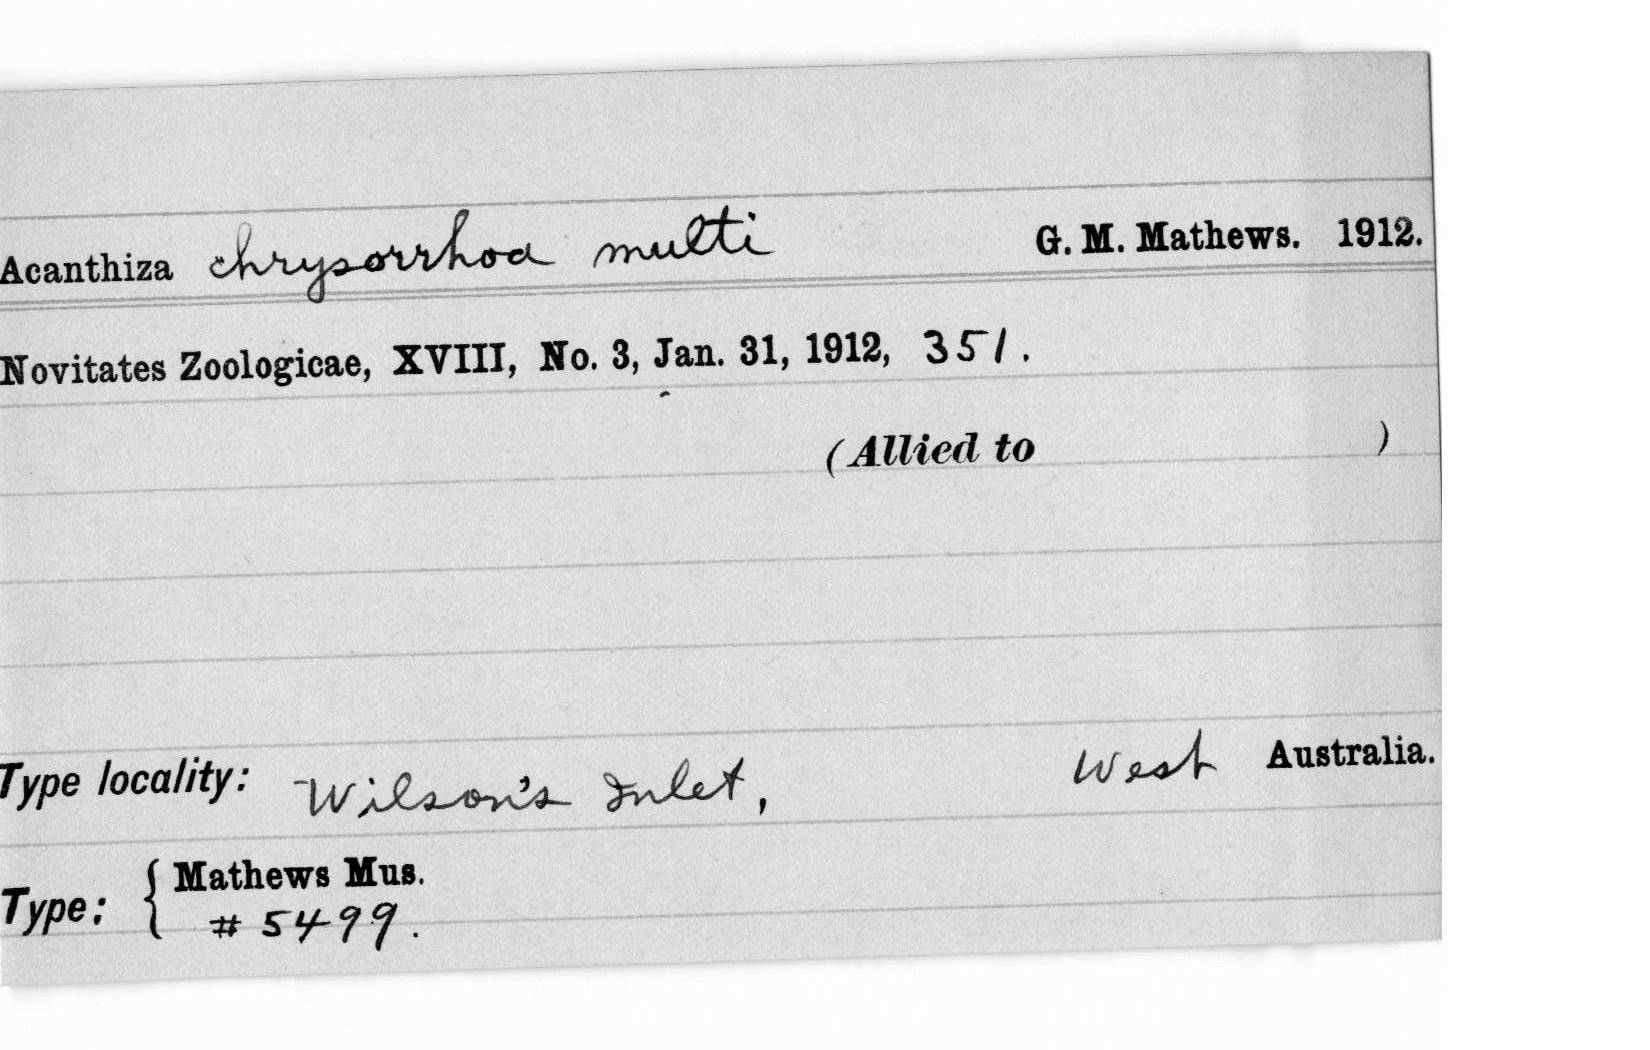 Acanthiza chrysorrhoa multi G. M. Mathews. 1912.
Novitates Zoologicae, XVIII, No. 3, Jan. 31, 1912, 351.
(Allied to )
Type locality: Wilson's Inlet, West Australia.
Type: { Mathews Mus.
# 5499.